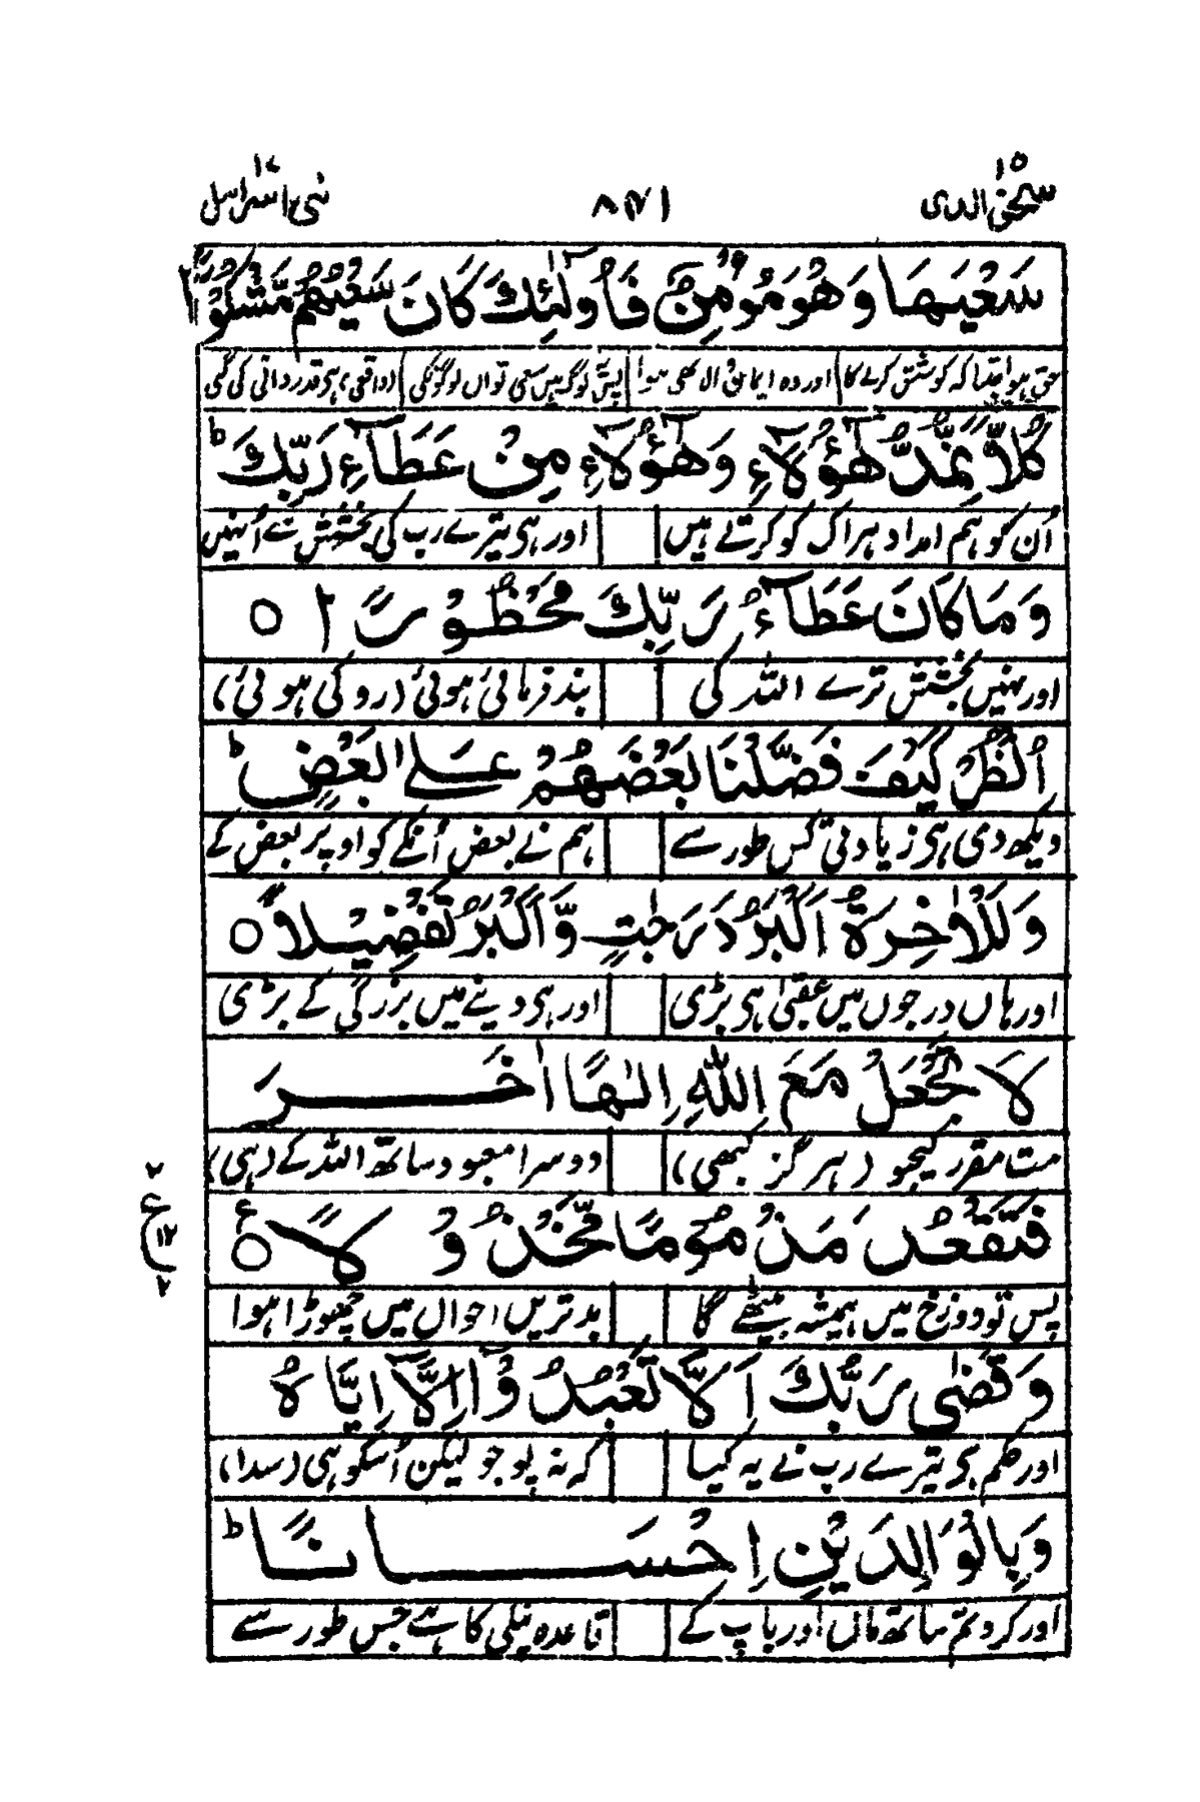 سبحٰن الذی ۱۵ ۸۷۱ بنی اسرائیل ۱۷
سَعْیَهَا وَهُوَ مُؤْمِنٌ فَاُولٰٓئِكَ كَانَ سَعْیُهُمْ مَّشْكُوْرًا
حق ہو اُنکا کہ کوشش کرنے کا اور وہ ایمان والا بھی ہوا پس لوگ ہیں سعی تو اں لوگونکی (واقعی) ہی قدردانی کی گئی
كُلًّا نُّمِدُّ هٰٓؤُلَآءِ وَهٰٓؤُلَآءِ مِنْ عَطَآءِ رَبِّكَ ؕ
اُن کو ہم امداد ہر اک کو کرتے ہیں اور ہی تیرے رب کی بخشش سے اُنہیں
وَمَا كَانَ عَطَآءُ رَبِّكَ مَحْظُوْرًا ○
اور نہیں بخشش ترے اللہ کی بند فرمائی ہوئی (روکی ہوئی)
اُنْظُرْ كَیْفَ فَضَّلْنَا بَعْضَهُمْ عَلٰی بَعْضٍ ؕ
دیکھ دی ہی زیادتی کس طور سے ہم نے بعض اُنکے کو اوپر بعض کے
وَلَلْاٰخِرَةُ اَكْبَرُ دَرَجٰتٍ وَّاَكْبَرُ تَفْضِیْلًا ○
اور ہاں درجوں میں عقبیٰ ہی بڑی اور ہی دینے میں بزرگی کے بڑی
لَا تَجْعَلْ مَعَ اللّٰهِ اِلٰهًا اٰخَرَ
مت مقرر کیجیو (ہرگز کبھی) دوسرا معبود ساتھ اللہ کے (ہی)
فَتَقْعُدَ مَذْمُوْمًا مَّخْذُوْلًا ○ ع
۲ ع ۱۲ ۲
پس تو دوزخ میں ہمیشہ بیٹھے گا بدتریں احوال میں چھوڑا ہوا
وَقَضٰی رَبُّكَ اَلَّا تَعْبُدُوْٓا اِلَّآ اِیَّاهُ
اور حکم ہی تیرے رب نے یہ کیا کہ نہ پوجو لیکن اُسکو ہی (سدا)
وَبِالْوَالِدَیْنِ اِحْسَانًا ؕ
اور کرو تم ساتھ ماں اور باپ کے قاعدہ نیکی کا ہے جس طور سے